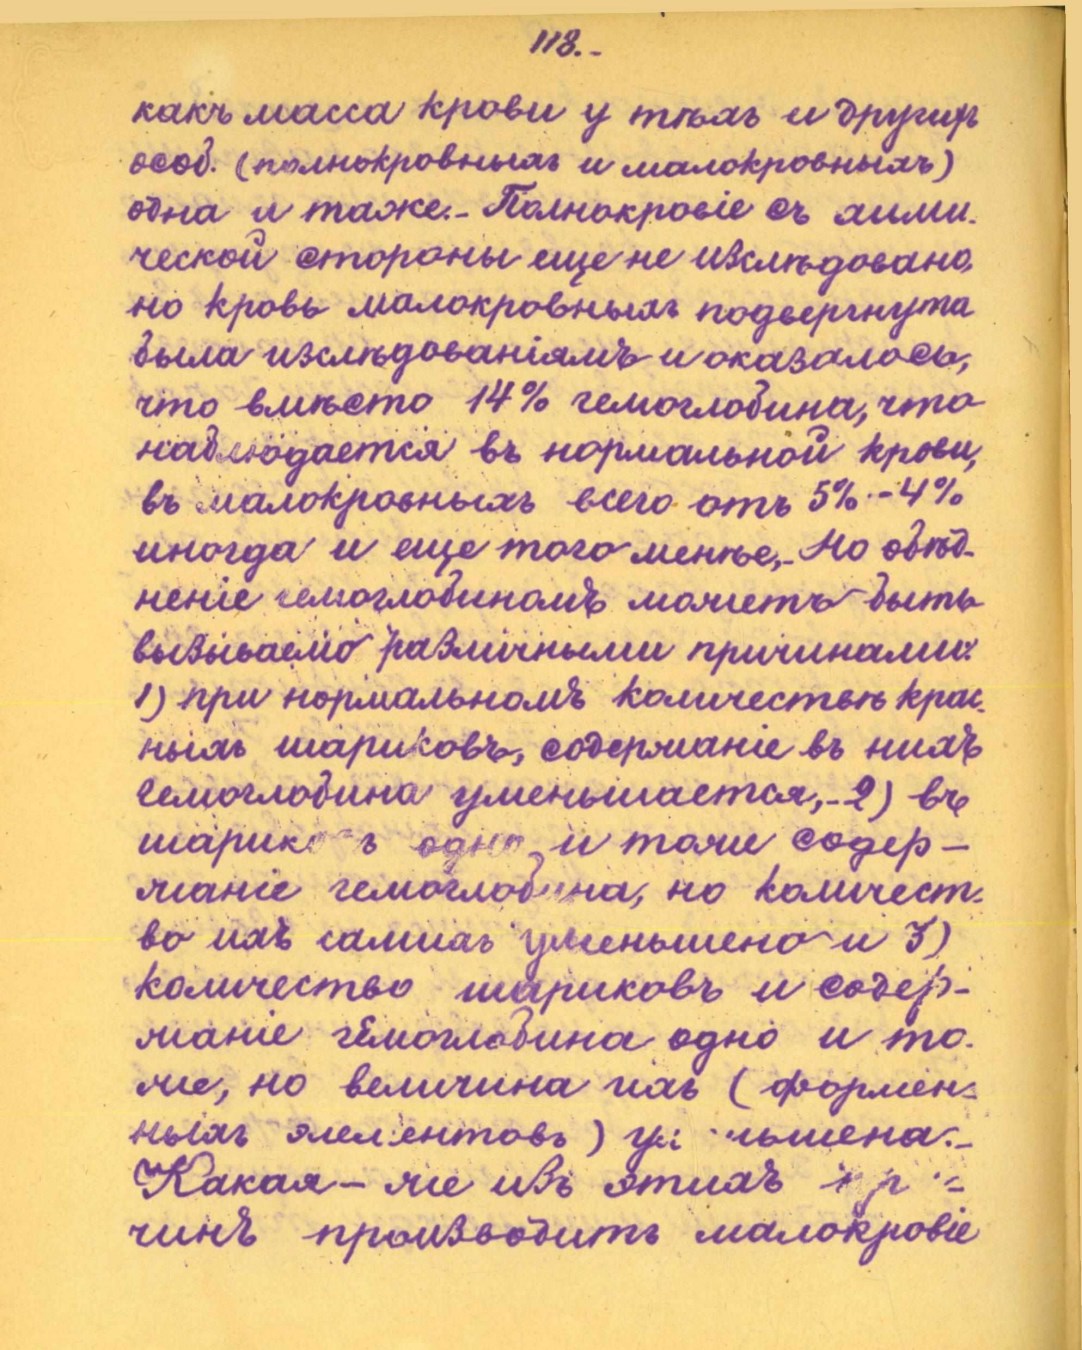 118.-
какъ масса крови у тѣхъ и другихъ
особ. (полнокровныхъ и малокровныхъ)
одна и таже.- Полнокровіе съ хими-
ческой стороны еще не изслѣдовано,
но кровь малокровныхъ подвергнута
была изслѣдованіямъ и оказалось,
что вмѣсто 14% гемоглобина, что
наблюдается въ нормальной крови,
въ малокровныхъ всего отъ 5% - 4%
иногда и еще того менѣе,- Но обѣд-
неніе гемоглобиномъ можетъ быть
вызываемо различными причинами:
1) при нормальномъ количествѣ крас-
ныхъ шариковъ, содержаніе въ нихъ
гемоглобина уменьшается,- 2) въ
шарикахъ одно и тоже содер-
жаніе гемоглобина, но количест-
во ихъ самихъ уменьшено и 3)
количество шариковъ и содер-
жаніе гемоглобина одно и то-
же, но величина ихъ (формен-
ныхъ элементовъ) уменьшена.-
Какая-же изъ этихъ при-
чинъ производитъ малокровіе